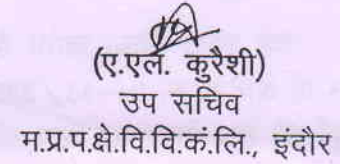 (ए.एल. कुरैशी)
उप सचिव
म.प्र.प.क्षे.वि.वि.कं.लि., इंदौर